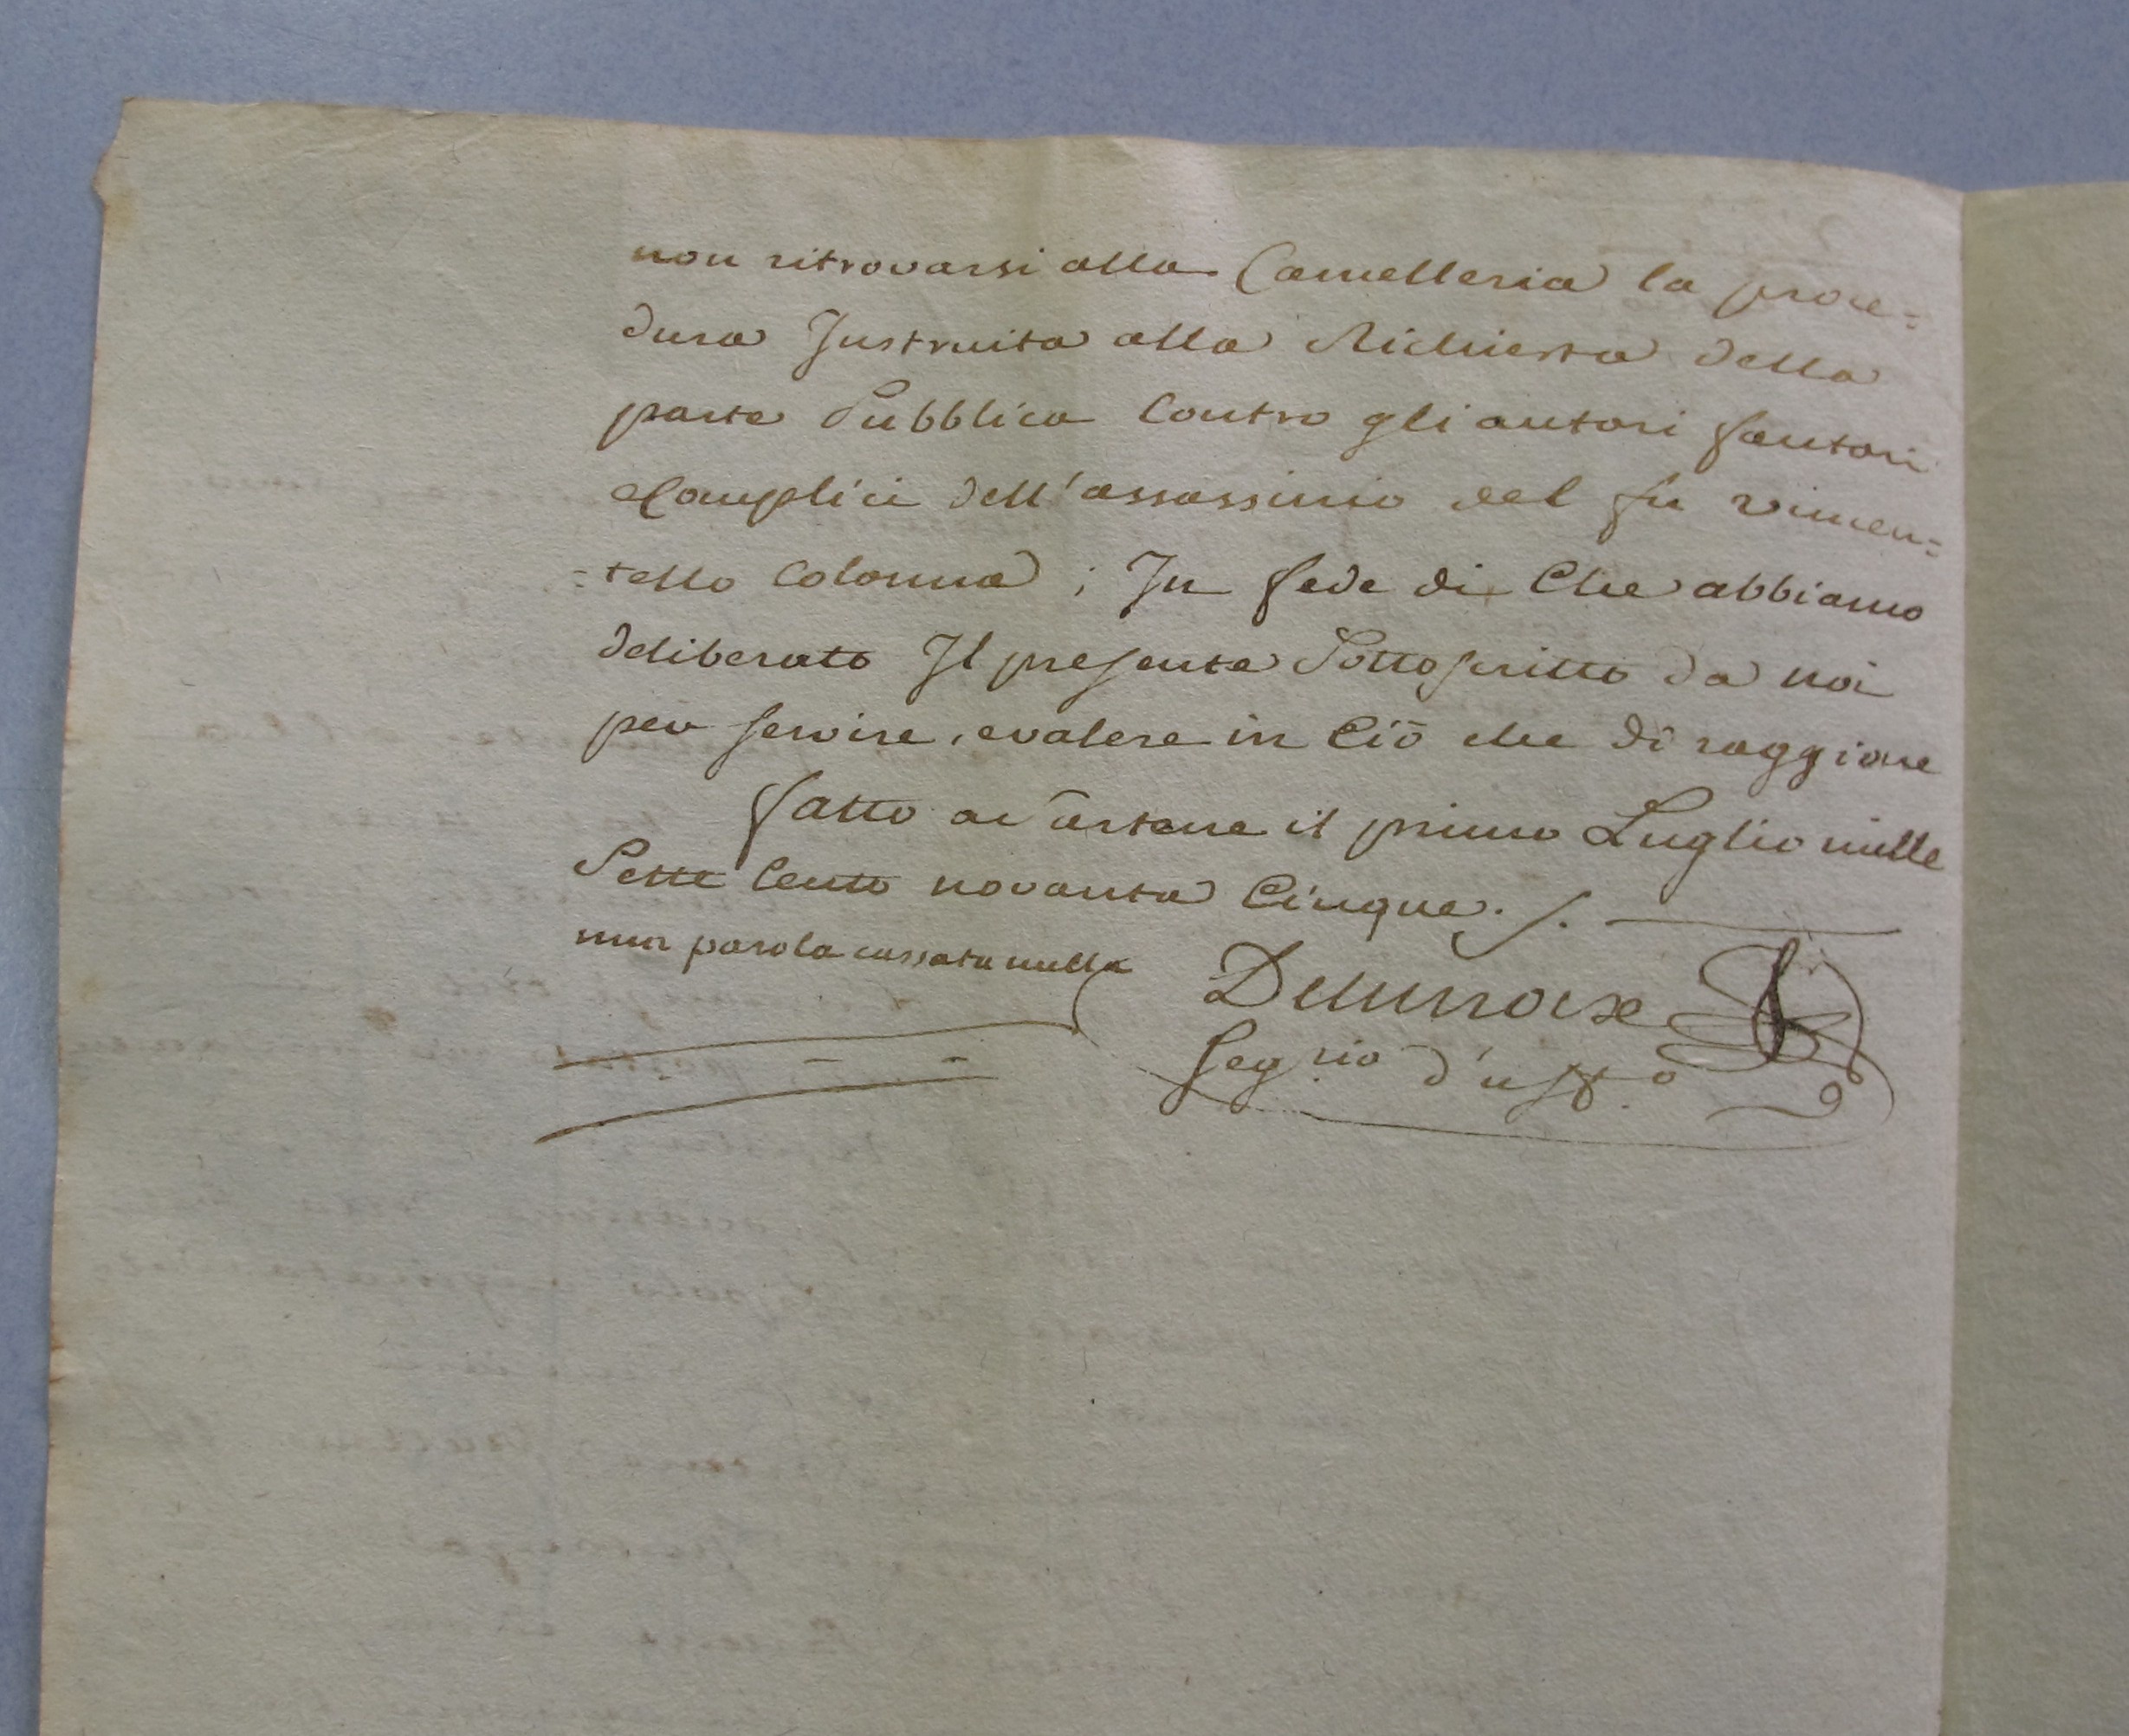 non ritrovarsi alla Cancelleria la proce=
dura Instruita alla Richiesta della
parte Pubblica Contro gli autori fautori
e Complici dell'assassinio del fu vincen=
=tello Colonna ; In fede di Che abbiamo
deliberato Il presente Sottoscritto da noi
per servire, e valere in Ciò che di raggione
fatto a Cortene il primo Luglio mille
Sette Cento novanta Cinque. /.
una parola cassata nulla
Segrio d'uffo.